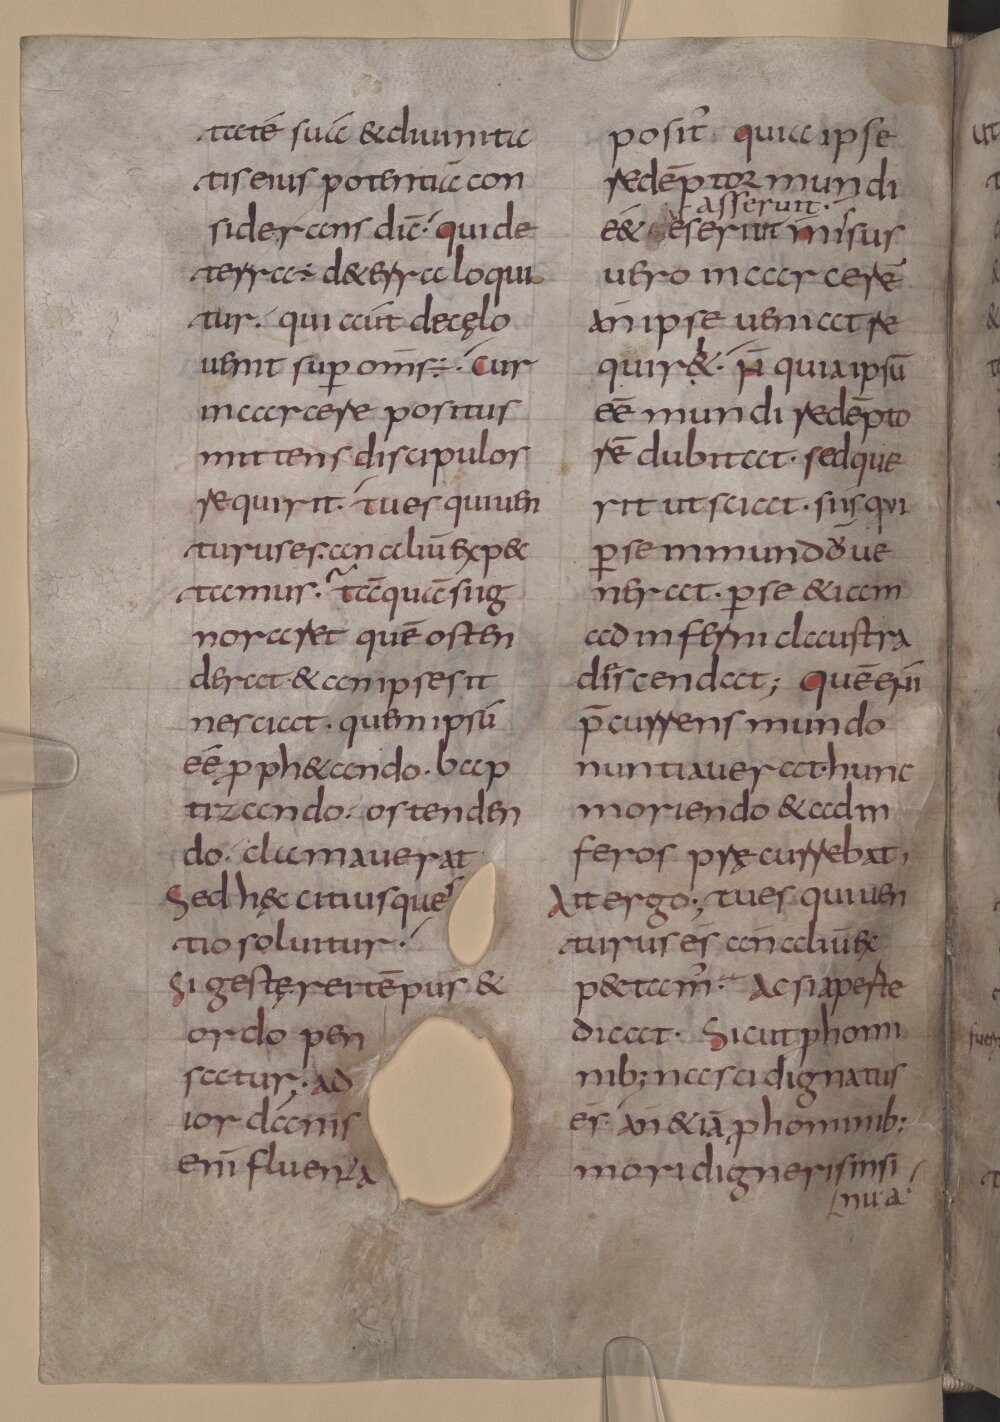 tatē suā & diuinita
tis eius potentiā con
siderans dic̄· qui de
terra· d&erra loqui
tur· qui aūt de cęlo
uenit sup om̄s· Cur
in carcere positus
mittens discipulos
requirit· tu es qui uen
turus es· an aliū exp&
tamus· tāquā si ig
noraret quē osten
derat· & an ipse sit
nesciat· quem ipsū
eē proph&ando· bap
tizando· ostenden
do· clamauerat
Sed hęc citius ques
tio soluitur·
Si gestę rei tēpus &
ordo pen
satur; ad
iordanis
eni fluenta
posit᷒ quia ipse
redēptor mundi
asseruit·
ē& eserut misus
uero in carcerē
an ipse ueniat re
quir&· n̄ quia ipsū
eē mundi redēpto
rē dubitat· sed que
rit ut sciat· si is qui
per se in mundū ue
nerat· per se & iam
ad inferni claustra
discendat; Quē eni
p̄currens mundo
nuntiauerat· hunc
moriendo & ad in
feros pręcurrebat,
Ait ergo; tu es qui uen
turus es an aliū ex
p&tam᷒· Ac si aperte
dicat· Sicut p homi
nib; nasci dignatus
es· an & iā p hominib;
mori digneris insi
nua·